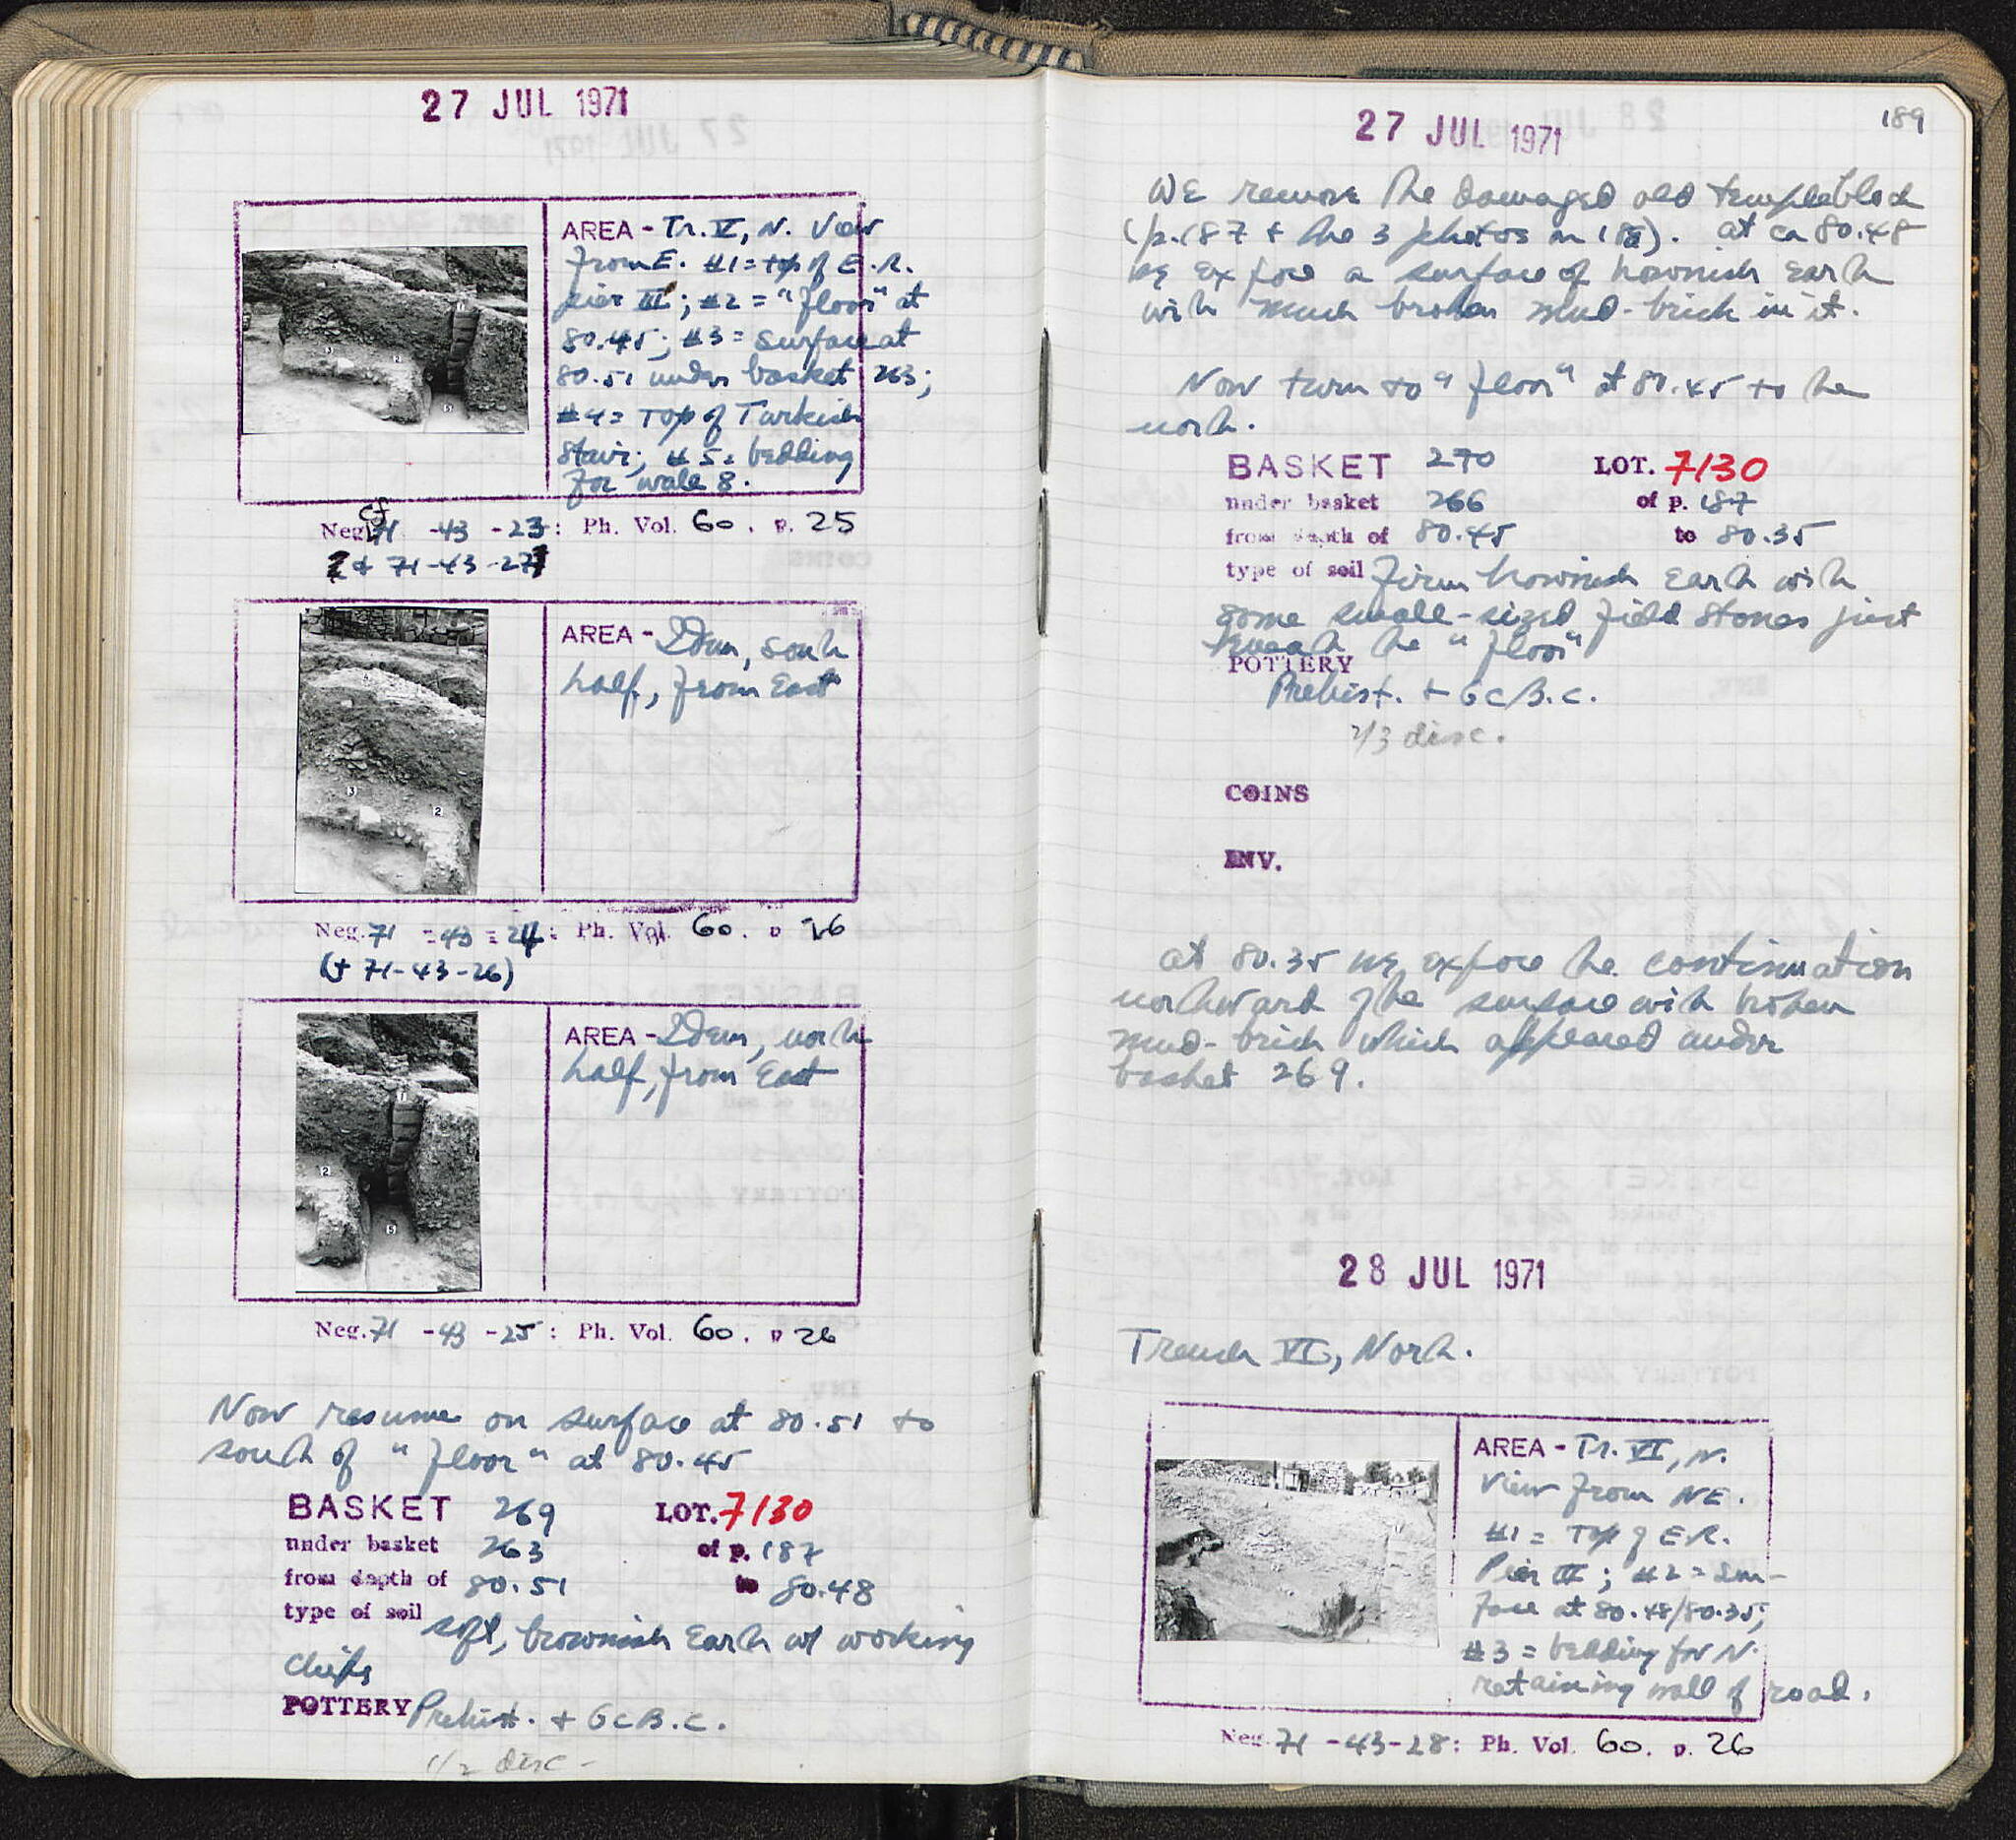 27 JUL 1971
AREA - Tr. VI, N. View
from E. #1 = top of E.R.
pier III; #2 = "floor" at
80.45; #3 = surface at
80.51 under basket 263;
#4 = Top of Turkish
Stair; #5 = bedding
for wall 8.
Neg. 71 -43 -23: Ph. Vol. 60. p. 25
& 71-43-27
AREA - Idem, south
half, from East
Neg. 71 -43 -24: Ph. Vol. 60. p 26
(& 71-43-26)
AREA - Idem, north
half, from East
Neg. 71 -43 -25: Ph. Vol. 60. p 26
Now resume on surface at 80.51 to
south of "floor" at 80.45
BASKET 269 LOT. 7/30
under basket 263 of p. 187
from depth of 80.51 to 80.48
type of soil soft, brownish earth w/ working
chips
POTTERY Prehist. + 6cB.C.
1/2 disc -
27 JUL 1971
189
We remove the damaged old temple block
(p. 187 & the 3 photos on 188). At ca 80.48
we expose a surface of brownish earth
with much broken mud-brick in it.
Now turn to "floor" at 80.45 to the
north.
BASKET 270 LOT. 7/30
under basket 266 of p. 187
from depth of 80.45 to 80.35
type of soil Firm brownish earth with
some small-sized field stones just
beneath the "floor"
POTTERY
Prehist. + 6cB.C.
2/3 disc.
COINS
INV.
At 80.35 we expose the continuation
northward of the surface with broken
mud-brick which appeared under
basket 269.
28 JUL 1971
Trench VI, North.
AREA - Tr. VI, N.
View from NE.
#1 = Top of E.R.
Pier III; #2 = Sur-
face at 80.48/80.35;
#3 = bedding for N.
retaining wall of road.
Neg. 71 -43-28: Ph. Vol. 60. p. 26